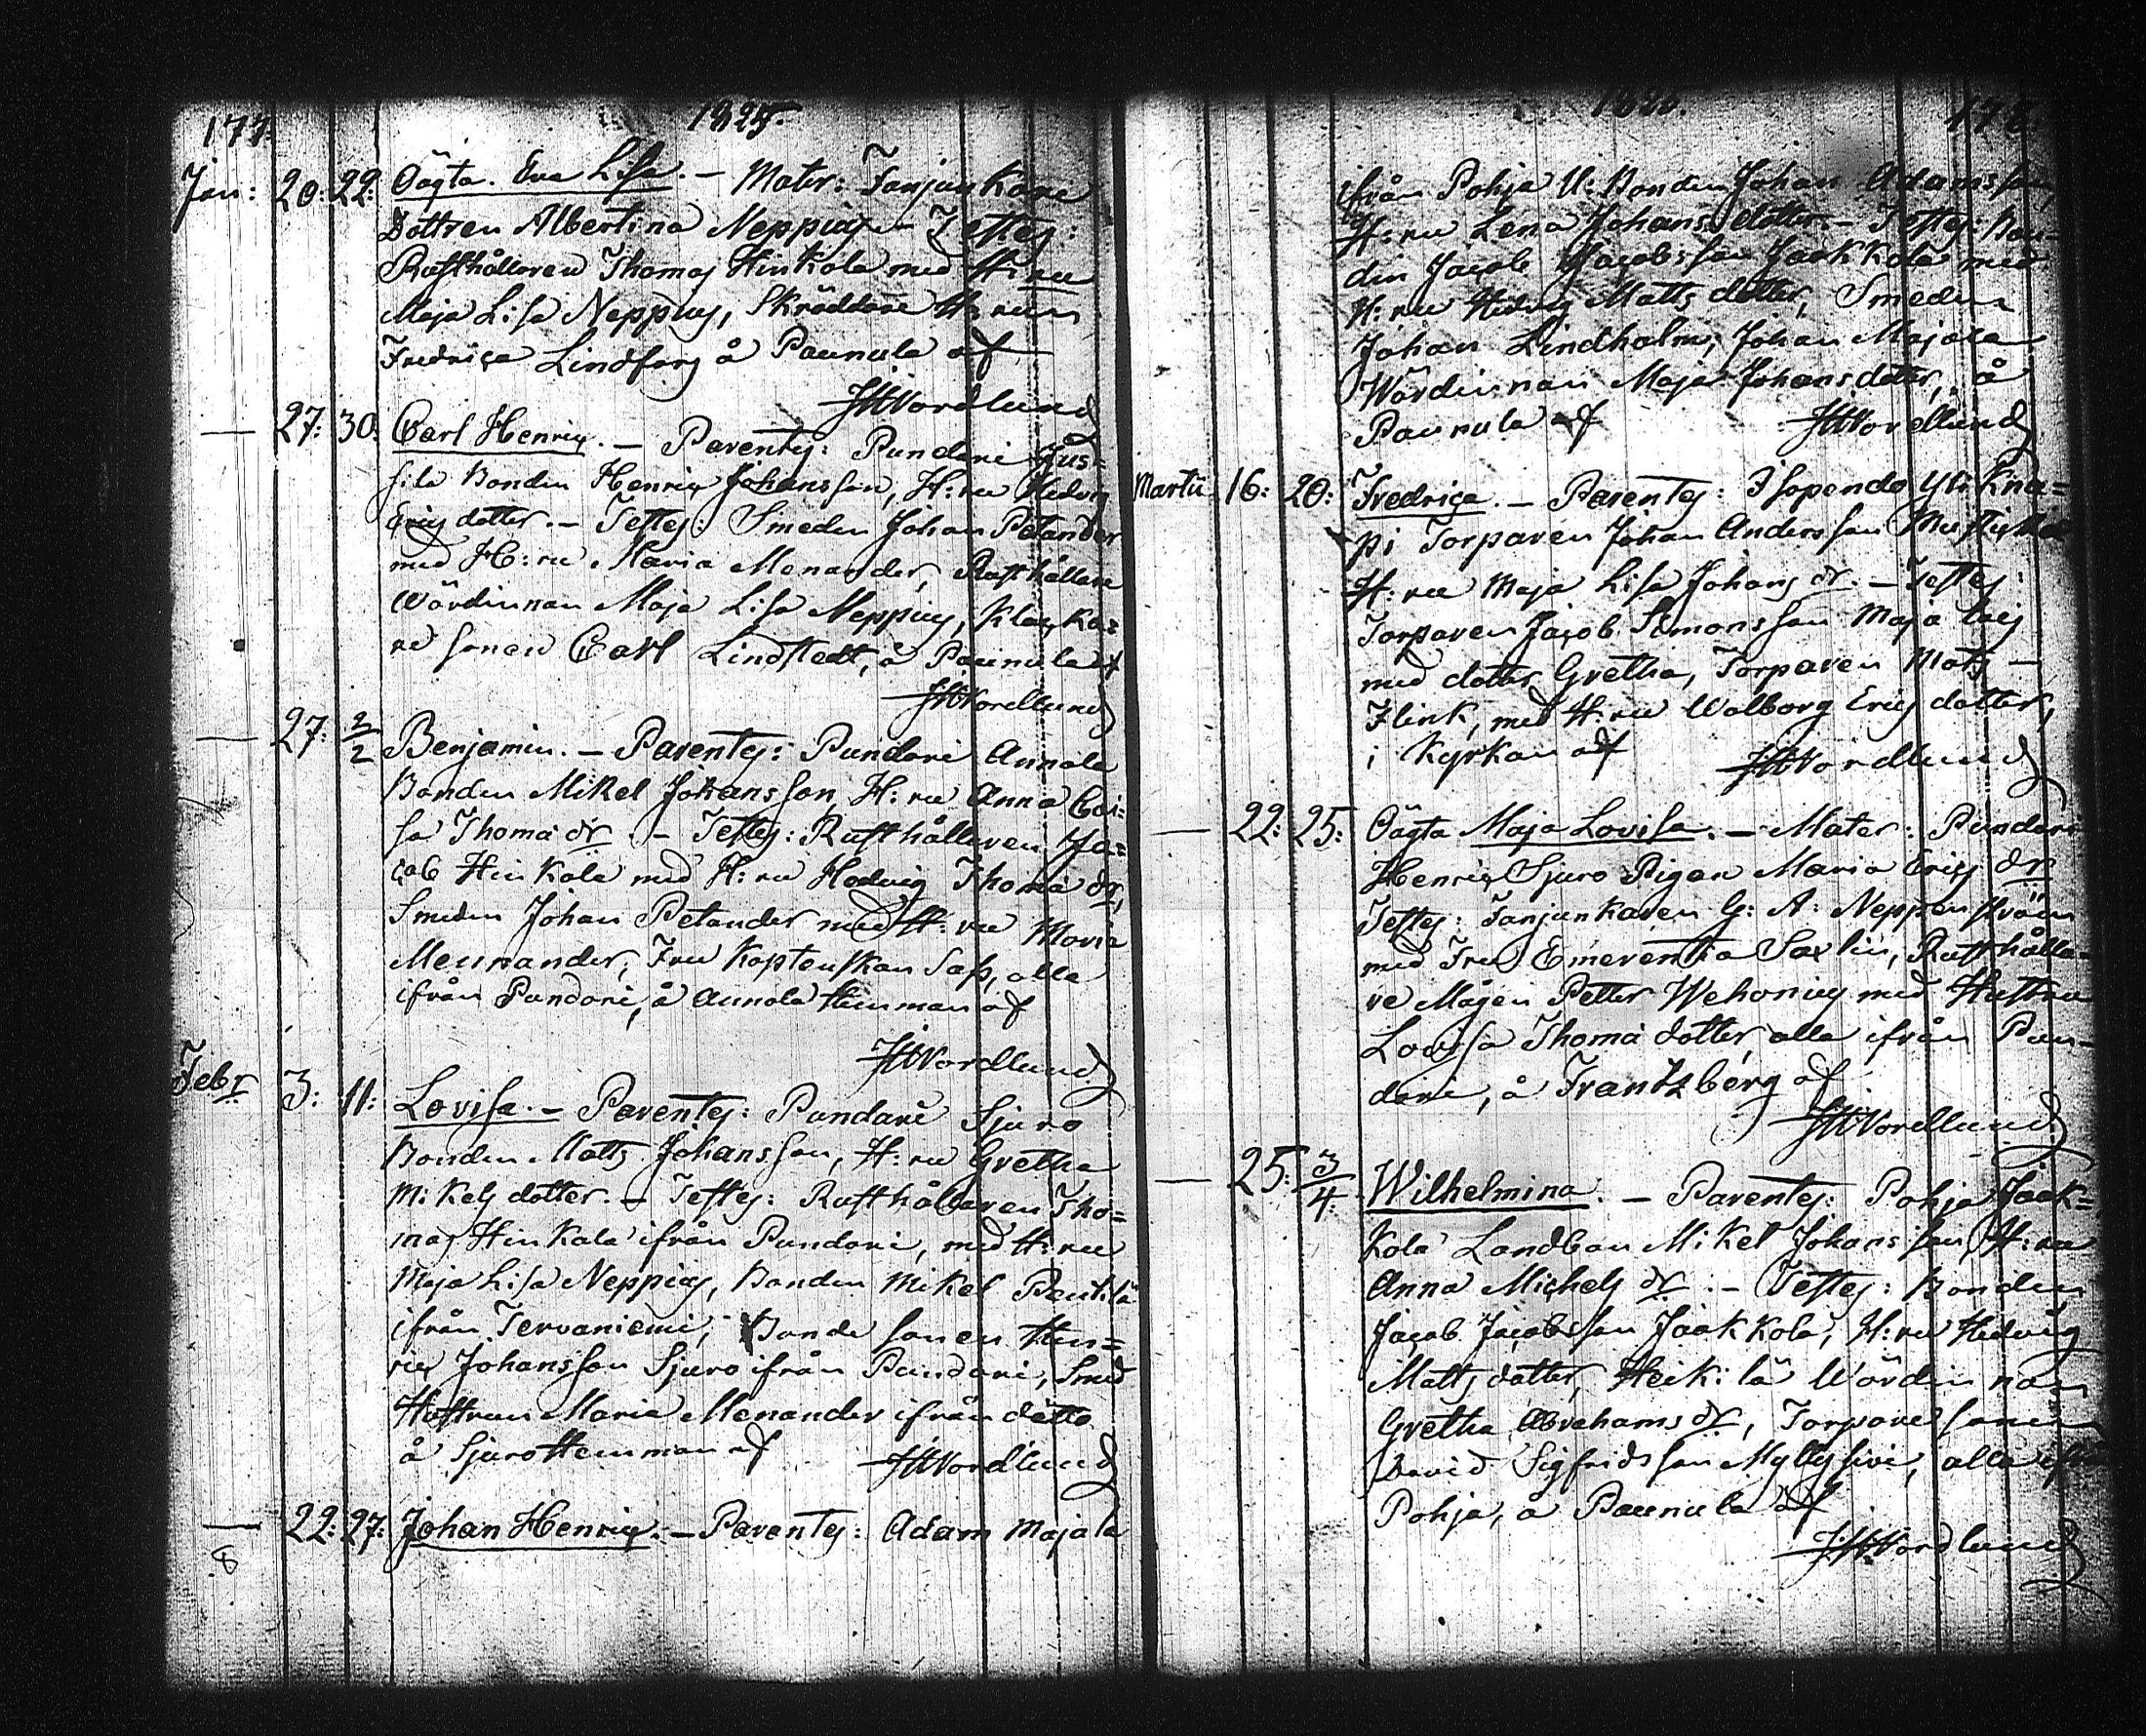 177.
1825.
Jan: 20: 22: Oägta. Eva Lisa. – Mater: Fanjunkare
Dottren Albertina Neppius – Testes:
Rusthållaren Thomas Hinkola med H:ru
Maja Lisa Neppius, Skräddare H:run
Fredrica Lindfors å Paunula af
JHNordlund
— 27: 30. Carl Henric. – Parentes: Pundari Jus=
sila Bonden Henric Johansson, H:ru Hedvig
Erics dotter. – Testes: Smeden Johan Petander
med H:ru Maria Menander, Rusthållare
Wärdinnan Maja Lisa Neppius, Klocka=
re sonen Carl Lindstedt, å Paunula af
JHNordlund
— 27: 2/2 Benjamin. – Parentes: Pundari Annola
Bonden Mikel Johansson, H:ru Anna Cai=
sa Thomä dr. – Testes: Rusthållaren Ja=
cob Hinkola med H:ru Hedvig Thomä dr,
Smeden Johan Petander med H:ru Maria
Mennander, Fru Kaptenskan Sass, alla
ifrån Pundari, å Annola Hemman af
JHNordlund
Febr 3: 11: Lovisa. – Parentes: Pundari Sjuro
Bonden Matts Johansson, H:ru Gretha
Mikels dotter. – Testes: Rusthållaren Tho=
mas Hinkala ifrån Pundari, med H:ru
Maja Lisa Neppius, Bonden Mikel Pentilä
ifrån Tervaniemi, Bonde sonen Hen=
ric Johansson Sjuro ifrån Pundari, Smed
Hustrun Maria Menander ifrån detto
å Sjuro Hemman af JHNordlund
— 22: 27: Johan Henric. – Parentes: Adam Majala
8
ifrån Pohja U: Bonden Johan Adamsson,
H:ru Lena Johans dotter. – Testes: Bon-
den Jacob Jacobsson Jaakkola med
H:ru Hedvig Matts dotter, Smeden
Johan Lindholm, Johan Majala
Wärdinnan Maja Johans dotter, å
Paunula af JHNordlund
Martii 16: 20: Fredrica. – Parentes: Isopendo Kna=
pi Torparen Johan Andersson
H:ru Maja Lisa Johans dr. – Testes:
Torparen Jacob Simonsson Maja
med dotter Gretha, Torparen Mats
Flink, med H:ru Walborg Erics dotter,
i Kyrkan af JHNordlund
— 22: 25: Oägta Maja Lovisa. – Mater: Pundari
Henric Sjuro Pigan Maria Erics dr
Testes: Fanjunkaren G: A: Neppenström
med Fru Emerentia Saxlin, Rusthålla-
re Mågen Petter Wehonius med Hustru
Lovisa Thomä dotter alla ifrån Pun-
dari, å Frantzberg af
JHNordlund
— 25: 3/4: Wilhelmina. – Parentes: Pohja Jaak=
kola Landbon Mikel Johansson H:ru
Anna Michels dr. – Testes: Bonden
Jacob Jacobsson Jaakkola, H:ru Hedvig
Matts dotter, Heikilä Wärdinnan
Gretha Abrahams dr, Torpare sonen
David Sigfridsson Myllysivi, alla ifrån
Pohja, å Paunula af
JHNordlund